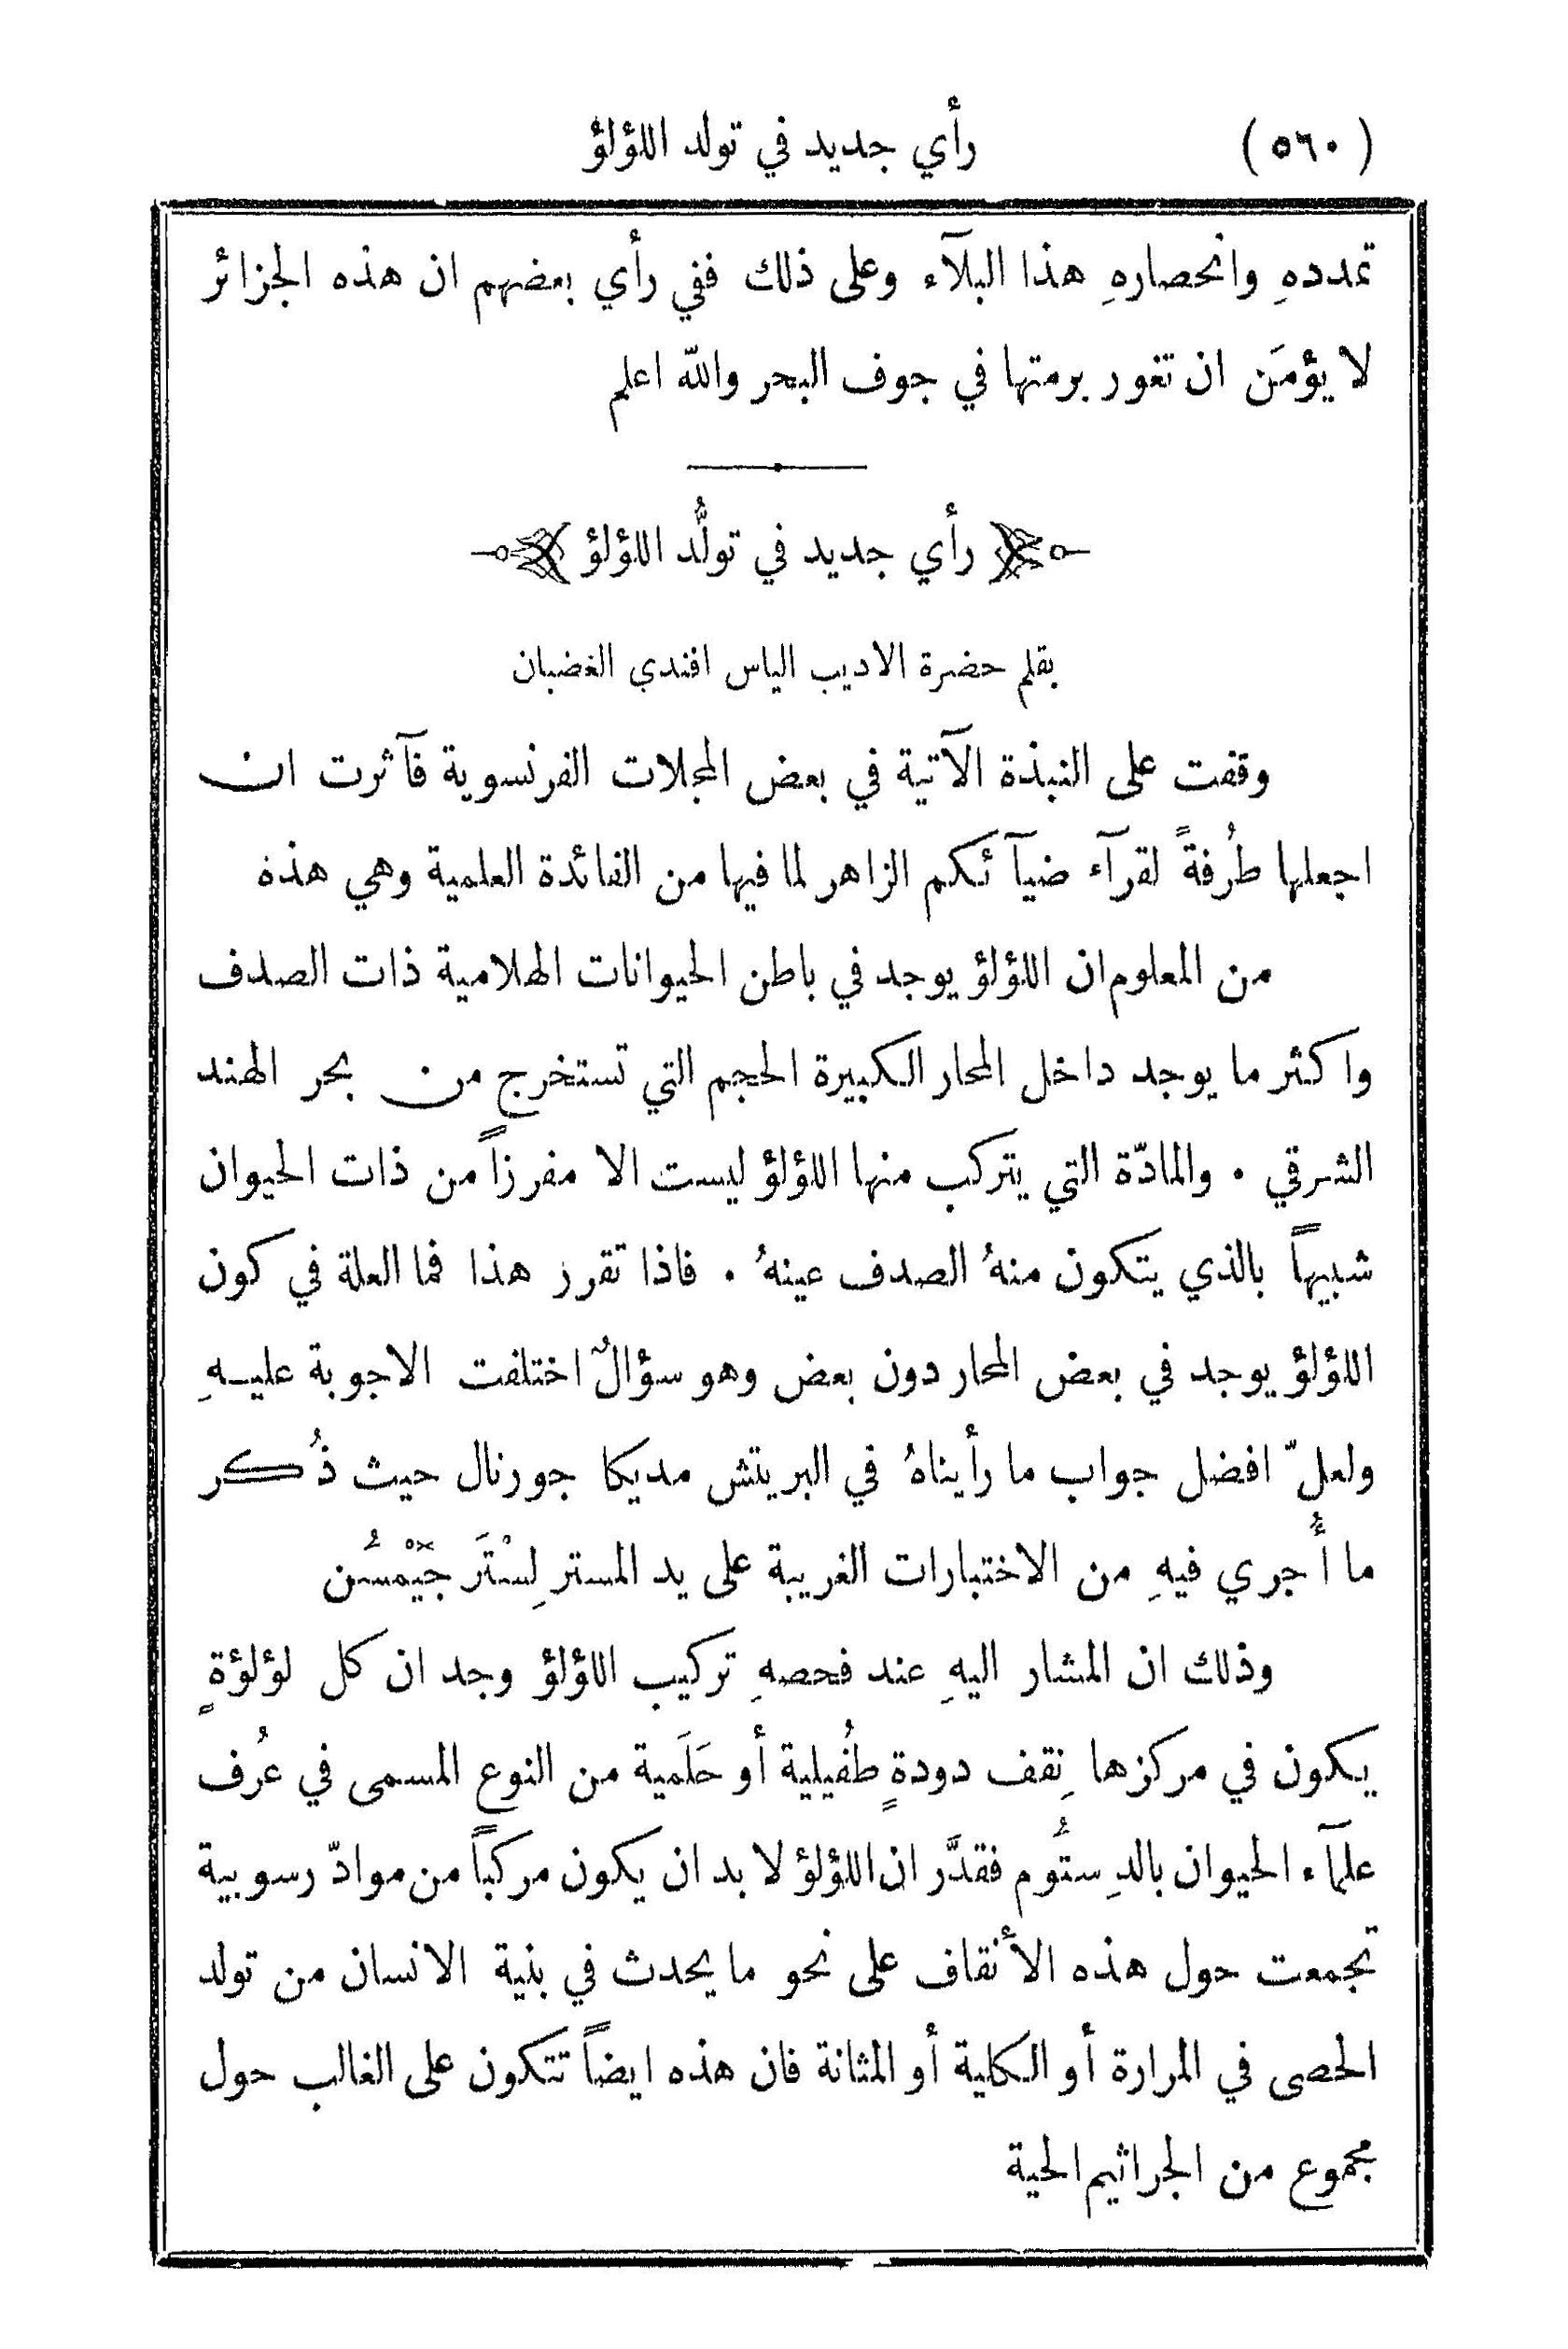 (٥٦٠) رأي جديد في تولد اللؤلؤ
تمددهِ وانحصارهِ هذا البلآء وعلى ذلك ففي رأي بعضهم ان هذه الجزائر
لا يؤمَن ان تغور برمتها في جوف البحر والله اعلم
رأي جديد في تولُّد اللؤلؤ
بقلم حضرة الاديب الياس افندي الغضبان
وقفت على النبذة الآتية في بعض المجلات الفرنسوية فآثرت ان
اجعلها طُرفةً لقرآء ضيآئكم الزاهر لما فيها من الفائدة العلمية وهي هذه
من المعلوم ان اللؤلؤ يوجد في باطن الحيوانات الهلامية ذات الصدف
واكثر ما يوجد داخل المحار الكبيرة الحجم التي تستخرج من بحر الهند
الشرقي . والمادّة التي يتركب منها اللؤلؤ ليست الا مفرزاً من ذات الحيوان
شبيهاً بالذي يتكون منهُ الصدف عينهُ . فاذا تقرر هذا فما العلة في كون
اللؤلؤ يوجد في بعض المحار دون بعض وهو سؤالٌ اختلفت الاجوبة عليهِ
ولعلّ افضل جواب ما رأيناهُ في البريتش مديكا جورنال حيث ذُكر
ما أُجري فيهِ من الاختبارات الغريبة على يد المستر لِسْتَر جَيْمسُن
وذلك ان المشار اليهِ عند فحصهِ تركيب اللؤلؤ وجد ان كل لؤلؤةٍ
يكون في مركزها نِقف دودةٍ طُفيلية أو حَلَمية من النوع المسمى في عُرف
علمآء الحيوان بالدِستُوم فقدَّر ان اللؤلؤ لا بد ان يكون مركباً من موادّ رسوبية
تجمعت حول هذه الأنقاف على نحو ما يحدث في بنية الانسان من تولد
الحصى في المرارة أو الكلية أو المثانة فان هذه ايضاً تتكون على الغالب حول
مجموع من الجراثيم الحية